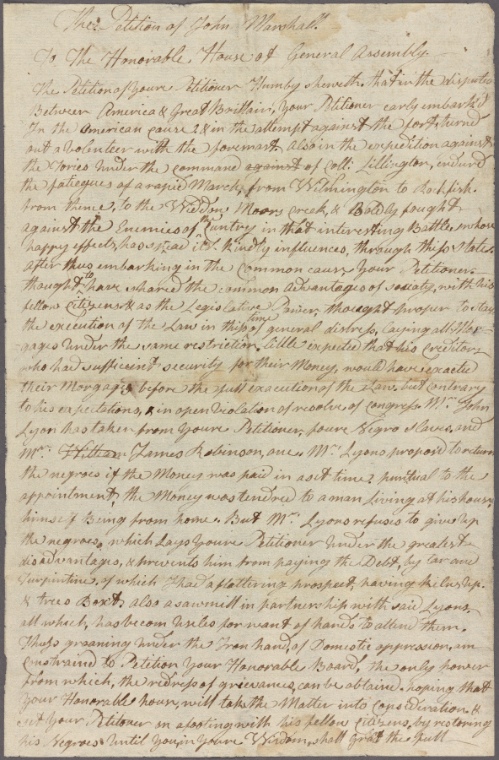 The Petition of John Marshall
To The Honorable House of General Assembly
The Petition of Youre Petitioner Humbly sheweth that in the dispute
Betwen America & Great Brittain, Your Petitioner early embarkd
In the American cause & in the attempt against the fort, turned
out a Volunteer with the foremost, also in the expedition against
the Tories under the command against of Coll. Lillington, endured
the fateigues of a rapid March, from Wilmington to Rockfish
from thence, to the Widdow Moors Creek, & Boldly fought
against the Enemies of the Cuntry in that interesting Battle, whose
happy effects, has shead its kindly influences, through this State
After thus embarking in the Common cause Your Petitioner
thought to have shared the common advantages of society, with his
fellow Citizens & as the Legislative Power, thought proper to stay
the execution of the Law in this time of general distress, Laying all Mor
gages under the same restriction, little expected that his Creditors
who had sufficient security for their Money, would have exacted
their Morgages before the full execution of the Law, but contrary
to his expectations, & in open Violation of resolves, of Congress Mr. John
Lyon has taken from Youre Petitioner, foure Negro slaves, and
Mr. William James Robinson, one, Mr. Lyons proposd to return
the negroes if the Money was paid in a set time, puntual to the
appointment, the Money was tendred to a man living at his house
himself Being from home. But Mr. Lyons refuses to give up
the negroes, which Lays Youre Petitioner under the greatest
disadvantages, & prevents him from paying the Debt, by Tar and
Turpintine, of which I had a flattering prospect, having kilns Up
& trees Boxt, also a sawmill in partnership with said Lyons,
all which, has becom Useles for want of hands to attend them.
Thus groaning under the Iron hand, of Domestic oppression, am
constraind to Petition Your Honorable Board, the only power
from which, the redress of grievances, can be obtaind hoping that
Your Honorable hours, will take the Matter into Consideration &
set Your Petitioner on a footing with his fellow citizens, by restoring
his Negroes Until You, in Youre Wisdom, shall grat the full